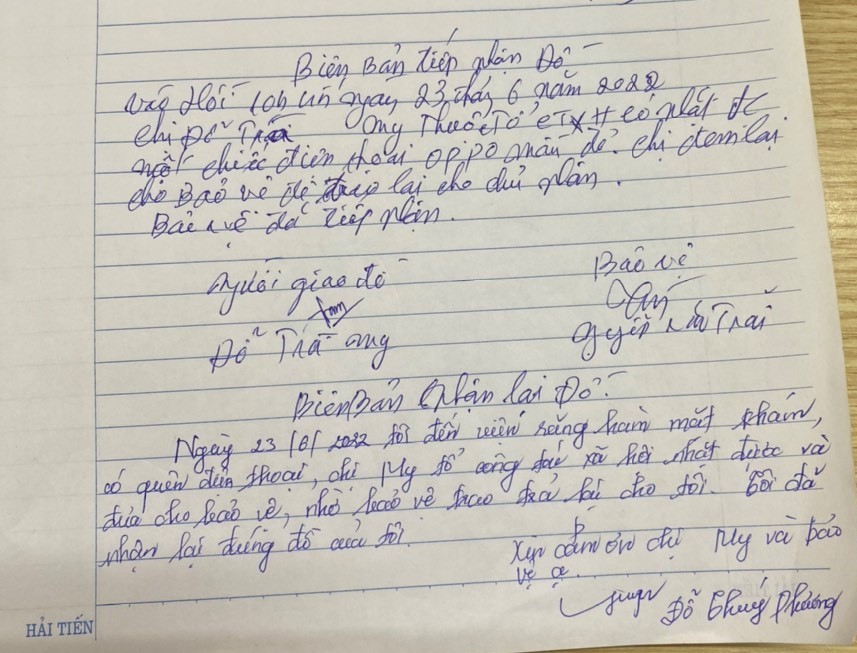 Biên Bản tiếp nhận Đồ
Vào Hồi 10h ngày 23 tháng 6 năm 2022
chị Đỗ Trà My Thuộc Tổ CTXH có nhặt đc
một chiếc điện thoại oppo màu đỏ. chị đem lại
cho Bảo vệ để trao lại cho chủ nhân.
Bảo vệ đã tiếp nhận.
Người giao đồ
Bảo vệ
Đỗ Trà My
Trãi
Biên Bản Nhận lại Đồ.
Ngày 23/6/2022 tôi đến viện răng hàm mặt khám,
có quên điện thoại, chị My tổ công tác xã hội nhặt được và
đưa cho bảo vệ, nhờ bảo vệ trao trả lại cho tôi. Tôi đã
nhận lại đúng đồ của tôi.
Xin cảm ơn chị My và bảo
vệ ạ.
Đỗ Thuý Phương
HẢI TIẾN